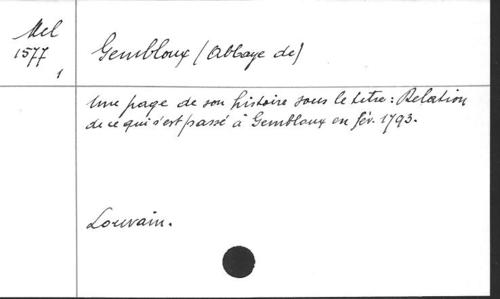 Mel
1577
1
Gembloux (Abbaye de)
Une page de son histoire sous le titre : Relation
de ce qui s'est passé à Gembloux en fév. 1793.
Louvain.